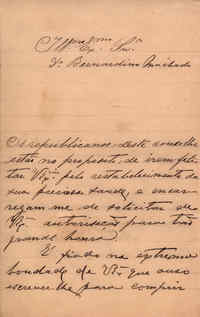 Illmo Exmo Snr
Dr Bernardino Machado
Os republicanos deste concelho
estão no proposito de irem feli-
tar V. Exa pelo restabelecimento da
sua preciosa saude, e encar-
regam-me de solicitar de
V. Exa autorisação para tão
grande honra.
É fiado na extrema
bondade de V. Exa que ouso
escrever-lhe para cumprir